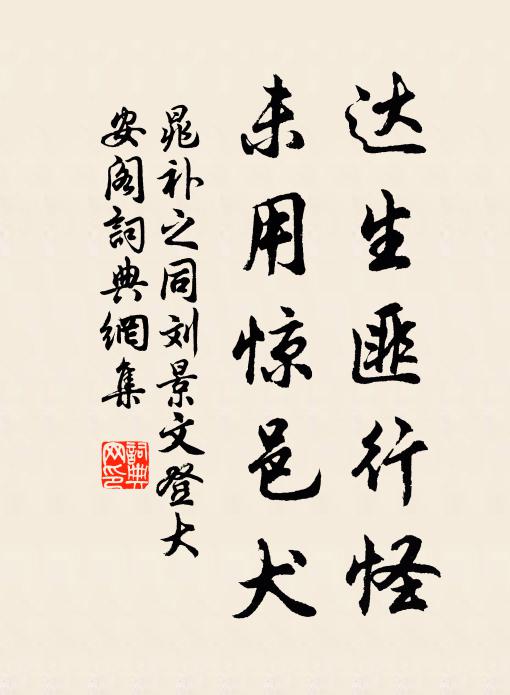 达生匪行怪
未用惊邑犬
晁补之同刘景文登大
安阁詞典網集
詞典
网印